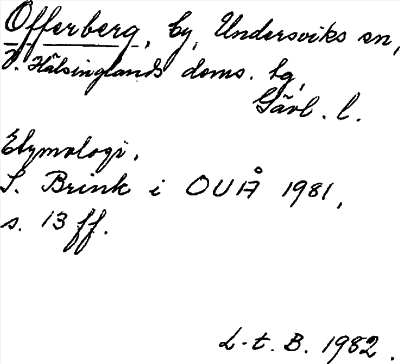 Offerberg, by, Undersviks sn,
V. Hälsinglands doms. hg,
Gävl. l.
Etymologi.
S. Brink i OUÅ 1981,
s. 13 ff.
L-t. B. 1982.